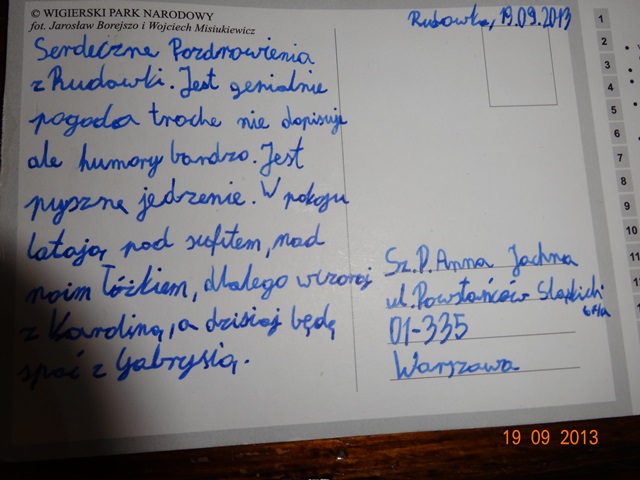 © WIGIERSKI PARK NARODOWY
fot. Jarosław Borejszo i Wojciech Misiukiewicz
Serdeczne Pozdrowienia
z Rudawki. Jest genialnie
pogoda troche nie dopisuje
ale humory bardzo. Jest
pyszne jedzenie. W pokoju
latają pod sufitem, nad
moim łóżkiem, dlatego wczoraj
z Karoliną, a dzisiaj będę
spać z Gabrysią.
19.09.2013
Sz.P. Anna Jachna
ul. Powstańców Śląskich
01-335
Warszawa
1
2
3
4
5
6
7
8
9
10
11
12
19 09 2013